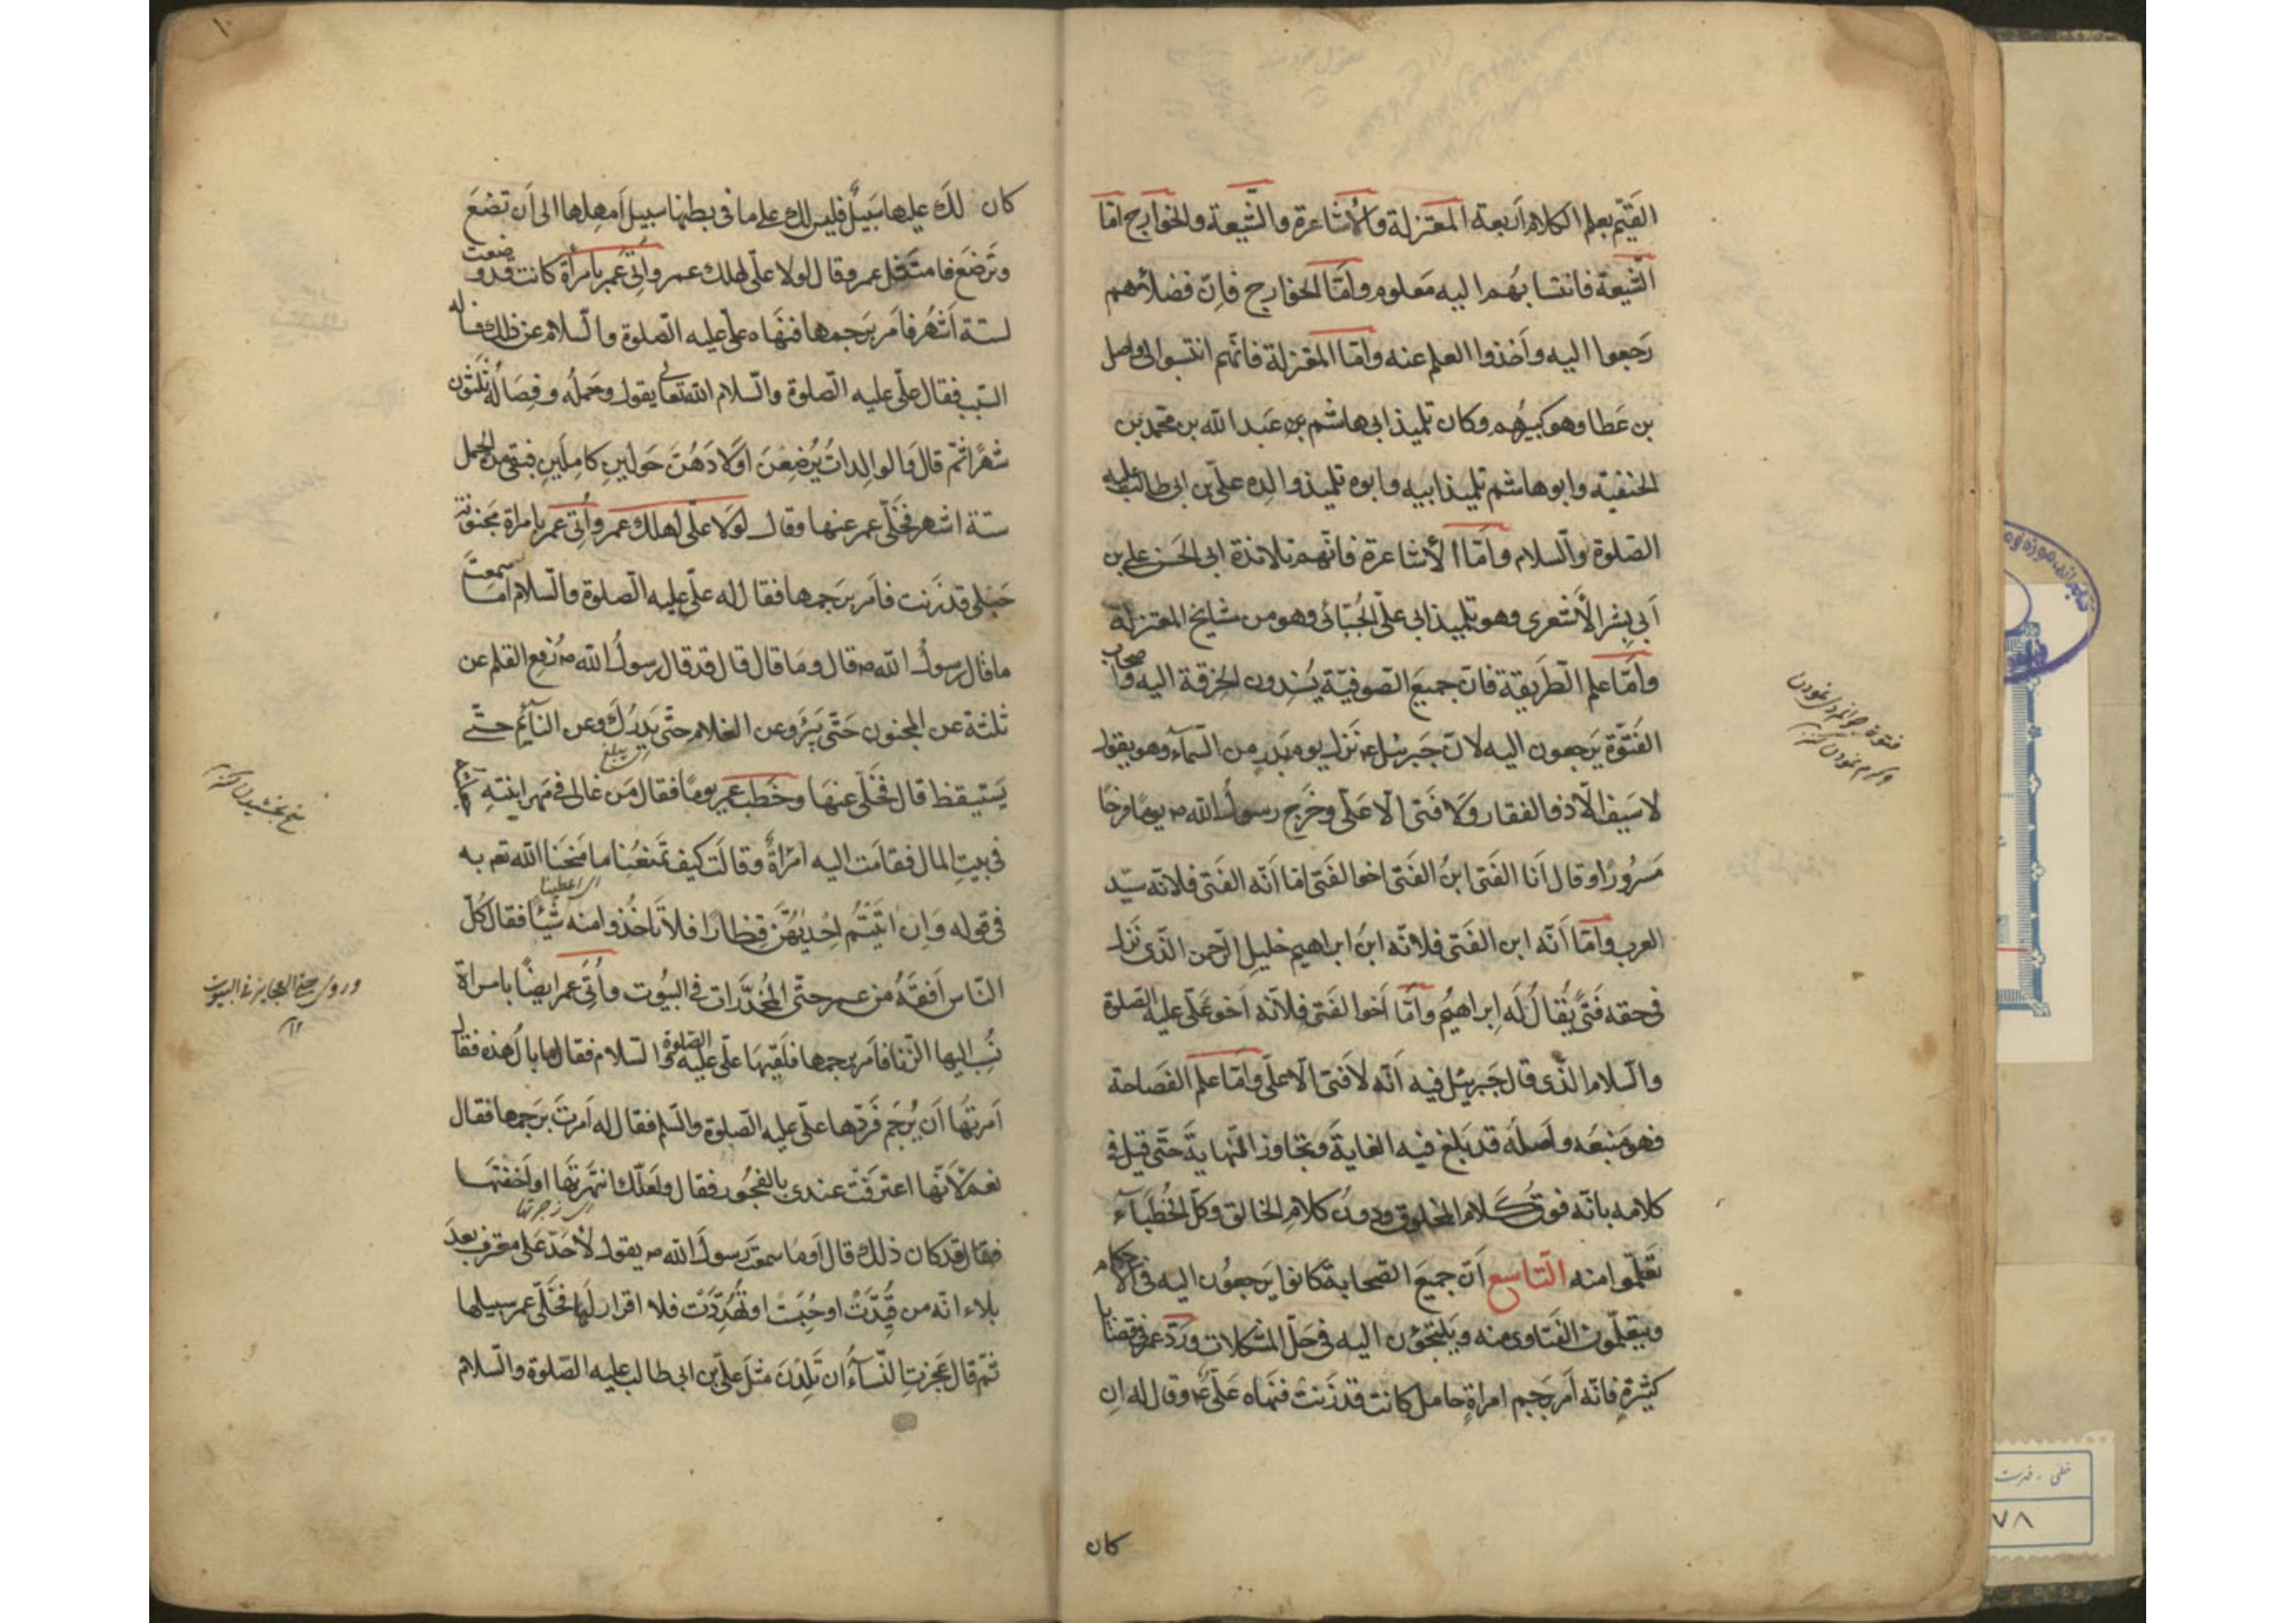 القيّم بعلم الكلام أربعة المعتزلة والأشاعرة والشيعة والخوارج امّا
الشيعة فانتسابُهُم اليه مَعلوم وامَّا الخوارج فاِنّ فضلائهم
رَجعوا اليه وأخذوا العلم عنه وامّا المعتزلة فانّهم انتسبوا الى واصل
بن عَطا وهو كبيرُهم وكان تلميذ ابى هاشم بن عَبد الله بن محمّد بن
الحنفيّة وابو هاشم تلميذ ابيه وابوه تلميذ والِده علىّ بن ابى طالب عليه
الصّلوة والسّلام وامّا الأشاعرة فانّهم تلامذة ابى الحَسَن على بن
أبى بِشر الأشعرى وهو تلميذ ابى علىّ الجُبّائى وهو من مشايخ المعتزلة
وامّا علم الطَريقة فانّ جميعَ الصّوفيّة يُسْنِدون الخِرقة اليه واصحاب
الفُتوّة يَرجعون اليه لانّ جَبرئيل ع نَزل يوم بَدرٍ من السّماء وهو يقول
لا سَيف الّا ذو الفقار وَلا فَتى الّا عَلى وخَرج رسولُ الله ص يومًا فرحًا
مَسرُورًا وقال أنا الفَتى ابنُ الفَتى اخو الفَتى امّا أنّه الفَتى فلانّه سيّد
العرب وامّا أنّه ابن الفَتى فلانّه ابنُ ابراهيم خليلِ الرّحمن الّذى نَزل
فى حقه فَتىً يُقالُ لَه اِبراهيمُ وامّا أخو الفَتى فلأنّه أخو عَلى عليه الصّلوة
والسّلام الّذى قال جَبرئيل فيه أنّه لا فَتى الّا على وامّا علم الفَصَاحة
فهو مَنبعَه وأصلُه قد بَلغ فيه الغايةَ وتجاوز النّهايةَ حتّى قيل فى
كلامه بانّه فوق كَلام المخلوق ودُونُ كلام الخالق وكلّ الخُطباء
تَعلّموا منه التاسع أنّ جميعَ الصّحابة كانوا يرجعُون اليه فى الأحكام
ويتعلّمون الفَتاوى منه ويَلتجؤن اليه فى حَلّ المشكلات وردّ عمر فى قضايا
كثيرةٍ فانّه أمر برَجم امراةٍ حامل كانت قد زَنت فنَهاه عَلىّ ع وقال له اِن
كان
فتوة جوانمردى نمودن
وكرم نمودن كنز
كان لكَ عليها سَبيلٌ فليس لك على ما فى بطنها سبيل أمهِلها الى أن تضعَ
وتَرضعَ فامتثل عمر وقال لولا علىّ لهلك عمر وأُتى عُمر بامرأة كانت قد وضعت
لستة أشهُر فأمر برَجمها فنَهاه علىّ عليه الصّلوة والسّلام عن ذلك فساله
السّبب فقال علىّ عليه الصّلوة والسّلام الله تعالى يقول وحَملُه وفِصَالُه ثلثون
شهرًا ثمّ قال وَالوالِداتُ يُرْضِعْنَ اَوْلادَهُنَّ حَولَينِ كامِلَينِ فبقى من الحمل
ستة اشهر فخَلّى عمر عنها وقال لَولا علىّ لهلك عمر وأُتى عمر بامراة مجنونة
حَبلى قد زَنت فأمر برَجمها فقال له علىّ عليه الصّلوة والسّلام اما سمعتَ
ما قال رسولُ الله ص قال وما قال قال قد قال رسولُ الله ص رُفع القلم عن
ثلثة عن المجنون حَتّى يَبْرَؤ وعن الغلام حتّى يَدرُك وعن النائم حتّى
اى يبلغ
يَستيقظ قال فخَلّى عنهَا وخَطب عمر يومًا فقال مَن غالى فى مَهر ابنتِه
فى بيتِ المال فقامت اليه امرأةٌ وقالَت كيف تَمنعُنا ما مَنحَنا الله تعم به
اى اعطينا
فى قوله وَاِن اتَيْتُم اِحْديهُنَّ قِنطارًا فلا تَاخُذوا منه شَيئًا فقال كلّ
النّاس أفقَهُ من عمر حتّى المُخدَّرات فى البُيوت وأُتى عُمر ايضًا بامراة
نُسب اليها الزّنا فأمر برجمها فلَقيَها علىّ عليه الصّلوة والسّلام فقال لها ما بالُ هذه فقال
أمرتُها أن تُرجَم فَردّها علىّ عليه الصّلوة والسّلم فقال له أمرتَ برَجمها فقال
نعم لأنّها اعترفَت عندى بالفجُور فقال ولعَلّك انتهرتَها او اَخفتَها
اى زجرتها
فقال قد كان ذلك قال أوَما سمعتَ رَسولَ الله ص يقول لا حَدَّ على معترف بعدَ
بلاء انّه من قُيِّدَت او حُبِسَت او تُهُدِّدَت فلا اقرار لَها فخَلّى عمر سبيلها
ثمّ قال عَجزتِ النّساءُ ان تَلِدْنَ مثلَ علىّ بن ابى طالب عليه الصّلوة والسّلام
منح بخشيدن كنز
وروى حتى العجايز فى البيوت
١٢
١٠
خطى - فهرست
٧٨